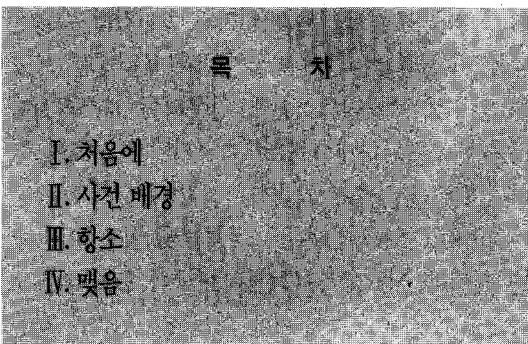 목 차
Ⅰ. 처음에
Ⅱ. 사건 배경
Ⅲ. 항소
Ⅳ. 맺음